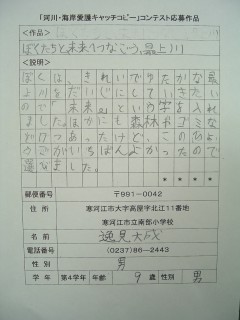 「河川・海岸愛護キャッチコピー」コンテスト応募作品
<作品>
ぼくたちと未来へつなごう、最上川
<説明>
ぼくは、きれいでゆたかな最
上川をだいじにしていきたい
ので「未来」という字を入れ
ました。ほかにも森林やゴミな
どがあったけど、このしょう
がいちばんよかったので
選びました。
* * * *
郵便番号 〒991-0042
住所 寒河江市大字高屋字北江11番地
寒河江市立南部小学校
名前 逸見大成
電話番号 (0237)86-2443
性別 男
学年 第4学年 年齢 9歳 性別 男